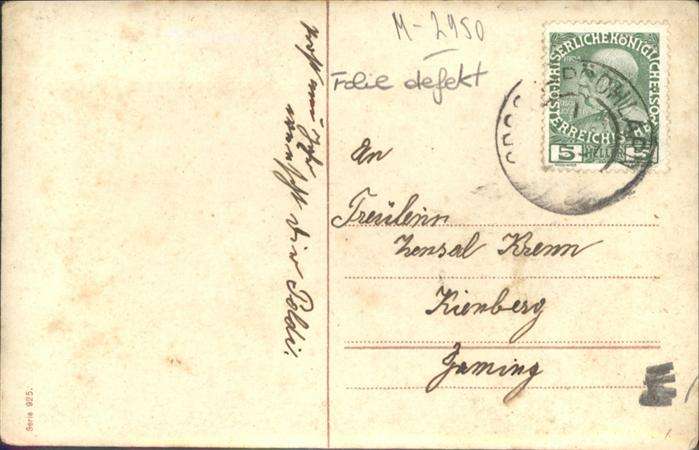 M-2950
Folie defekt
KAISERLICHE KÖNIGLICHE ÖSTERREICHISCHE
5 HELLER 5
An
Freülein
Zensal Krenn
Kienberg
Gaming
wünscht dir Poldi.
Serie 925.